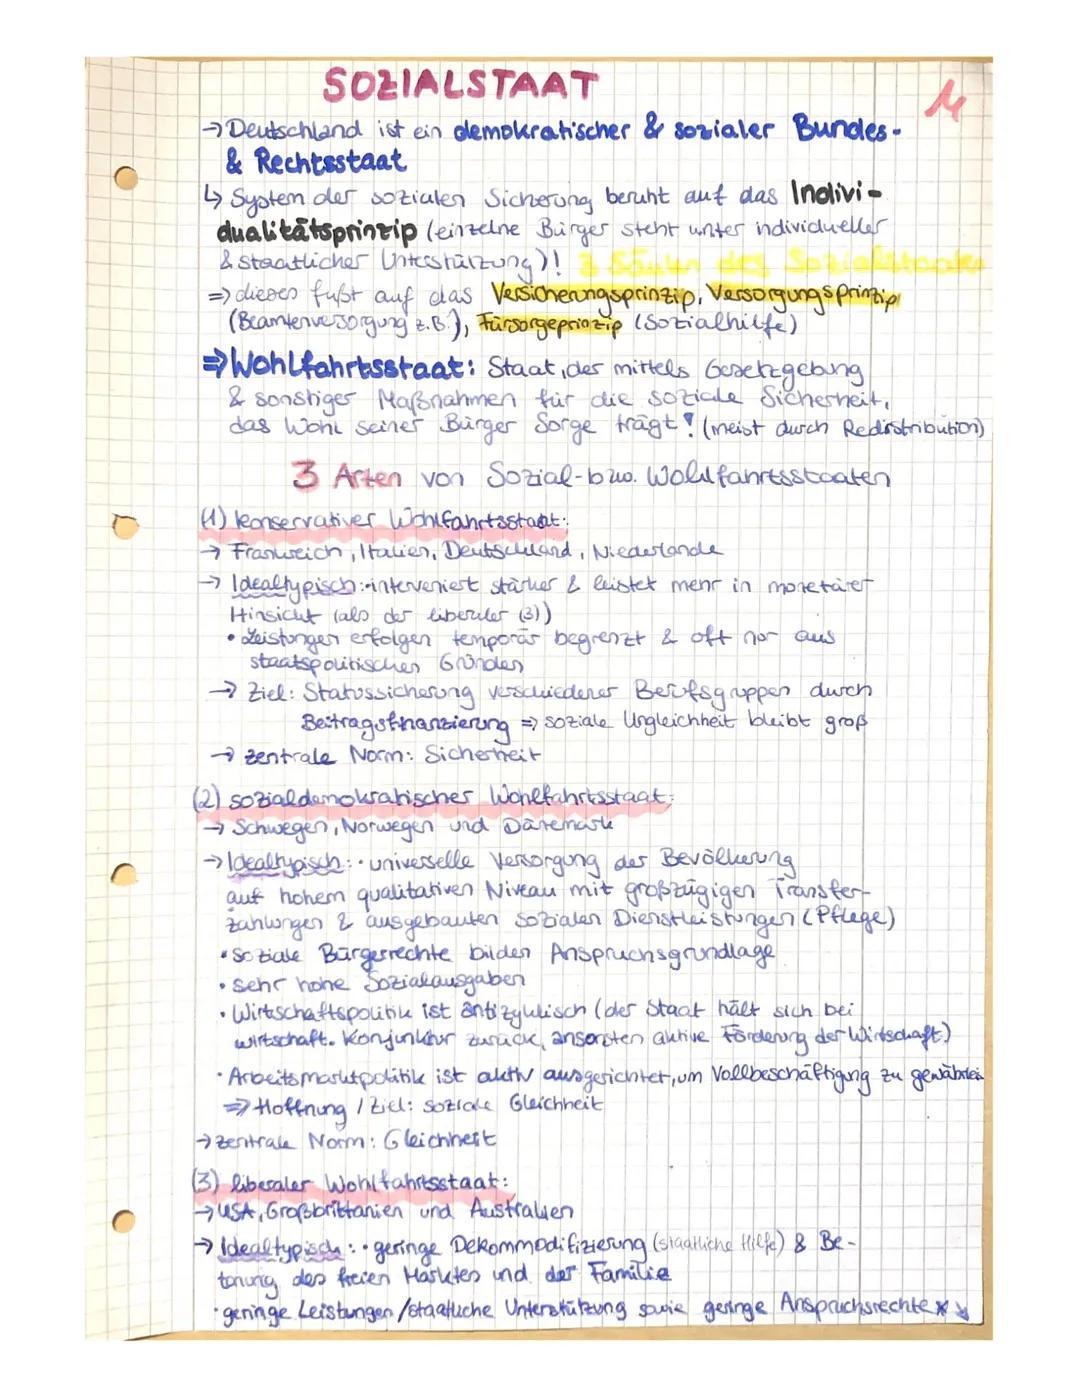 SOZIALSTAAT
→ Deutschland ist ein demokratischer & sozialer Bundes-
& Rechtsstaat
↳ System der sozialen Sicherung beruht auf das Indivi-
dualitätsprinzip (einzelne Bürger steht unter individueller
& staatlicher Unterstützung)! 3 Säulen des Sozialstaates
⇒ dieses fußt auf das Versicherungsprinzip, Versorgungsprinzip
(Beamtenversorgung z.B.), Fürsorgeprinzip (Sozialhilfe)
⇒ Wohlfahrtsstaat: Staat, der mittels Gesetzgebung
& sonstiger Maßnahmen für die soziale Sicherheit,
das Wohl seiner Bürger Sorge trägt! (meist durch Redistribution)
3 Arten von Sozial- bzw. Wohlfahrtsstaaten
(1) konservativer Wohlfahrtsstaat:
→ Frankreich, Italien, Deutschland, Niederlande
→ Idealtypisch: • interveniert stärker & leistet mehr in monetärer
Hinsicht (als der liberaler (3))
• Leistungen erfolgen temporär begrenzt & oft nur aus
staatspolitischen Gründen
→ Ziel: Statussicherung verschiedener Berufsgruppen durch
Beitragsfinanzierung ⇒ soziale Ungleichheit bleibt groß
→ zentrale Norm: Sicherheit
(2) sozialdemokratischer Wohlfahrtsstaat:
→ Schwegen, Norwegen und Dänemark
→ Idealtypisch: • universelle Versorgung der Bevölkerung
auf hohem qualitativen Niveau mit großzügigen Transfer-
zahlungen & ausgebauten sozialen Dienstleistungen (Pflege)
• soziale Bürgerrechte bilden Anspruchsgrundlage
• sehr hohe Sozialausgaben
• Wirtschaftspolitik ist antizyklisch (der Staat hält sich bei
wirtschaft. Konjunktur zurück, ansonsten aktive Förderung der Wirtschaft)
• Arbeitsmarktpolitik ist aktiv ausgerichtet, um Vollbeschäftigung zu gewährlei
⇒ Hoffnung / Ziel: soziale Gleichheit
→ zentrale Norm: Gleichheit
(3) liberaler Wohlfahrtsstaat:
→ USA, Großbrittanien und Australien
→ Idealtypisch: • geringe Dekommodifizierung (staatliche Hilfe) & Be-
tonung des freien Marktes und der Familie
• geringe Leistungen / staatliche Unterstützung sowie geringe Anspruchsrechte